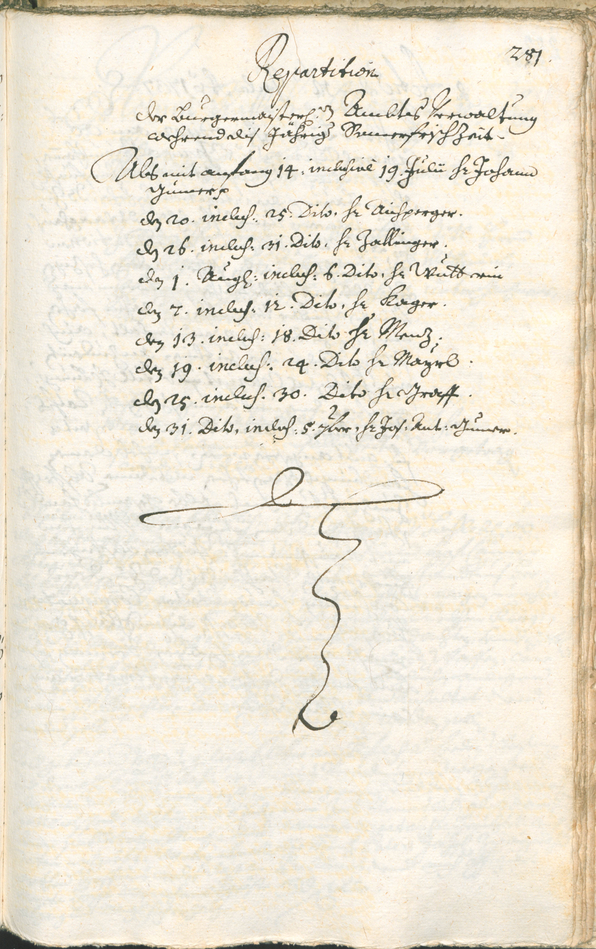 281.
Repartition
der Burgermaisterl: Ambtes Verwaltung
während dis Jährig Somerfrisch Zeit.
Als mit anfang 14. inclusive 19. Julii H: Johann
Gumer
den 20. inclus: 25. Dito, H: Aufperger.
den 26. inclus: 31. Dito, H: Zallinger.
den 1. Aug: inclus: 6. Dito, H: Wutterin
den 7. inclus: 12. Dito, H: Kager.
den 13. inclus: 18. Dito H: Menz.
den 19. inclus: 24. Dito H: Mayrl.
den 25. inclus: 30. Dito H: Graff.
den 31. Dito, inclus: 5. 7ber, H: Jos: Ant: Gumer.